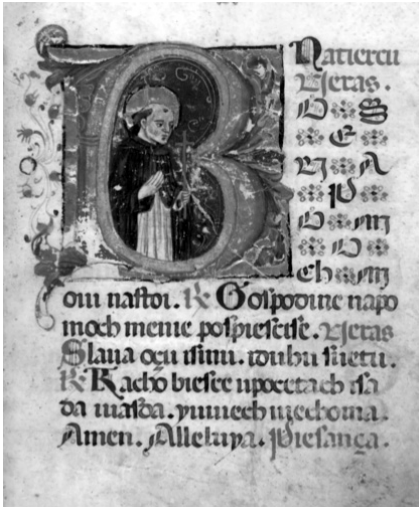 Natiercu
Vietas.
B O S
E
V A
P
O M
O
Ch M
oiu nastoi. R Gospodine napo
moch meine pospiescise. Vietas
Slaua ocu isinu. iduhu suetu.
R Kacho biesce upocetach isa
da iuasda. yuuiech uiechoma.
Amen. Alleluya. Piesança.